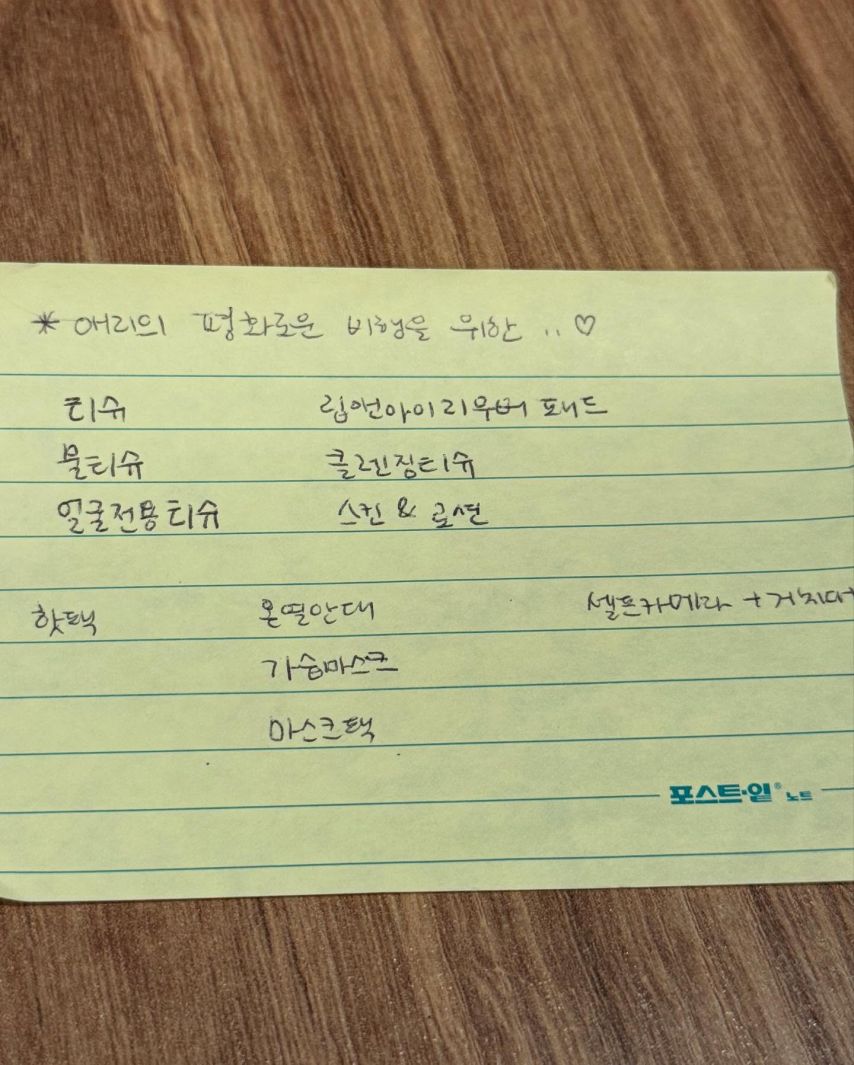 * 애리의 평화로운 비행을 위한 .. ♡
티슈 립앤아이리무버 패드
물티슈 클렌징티슈
얼굴전용티슈 스킨 & 로션
핫팩 온열안대 셀프카메라 + 거치대
가습마스크
마스크팩
포스트·잍® 노트